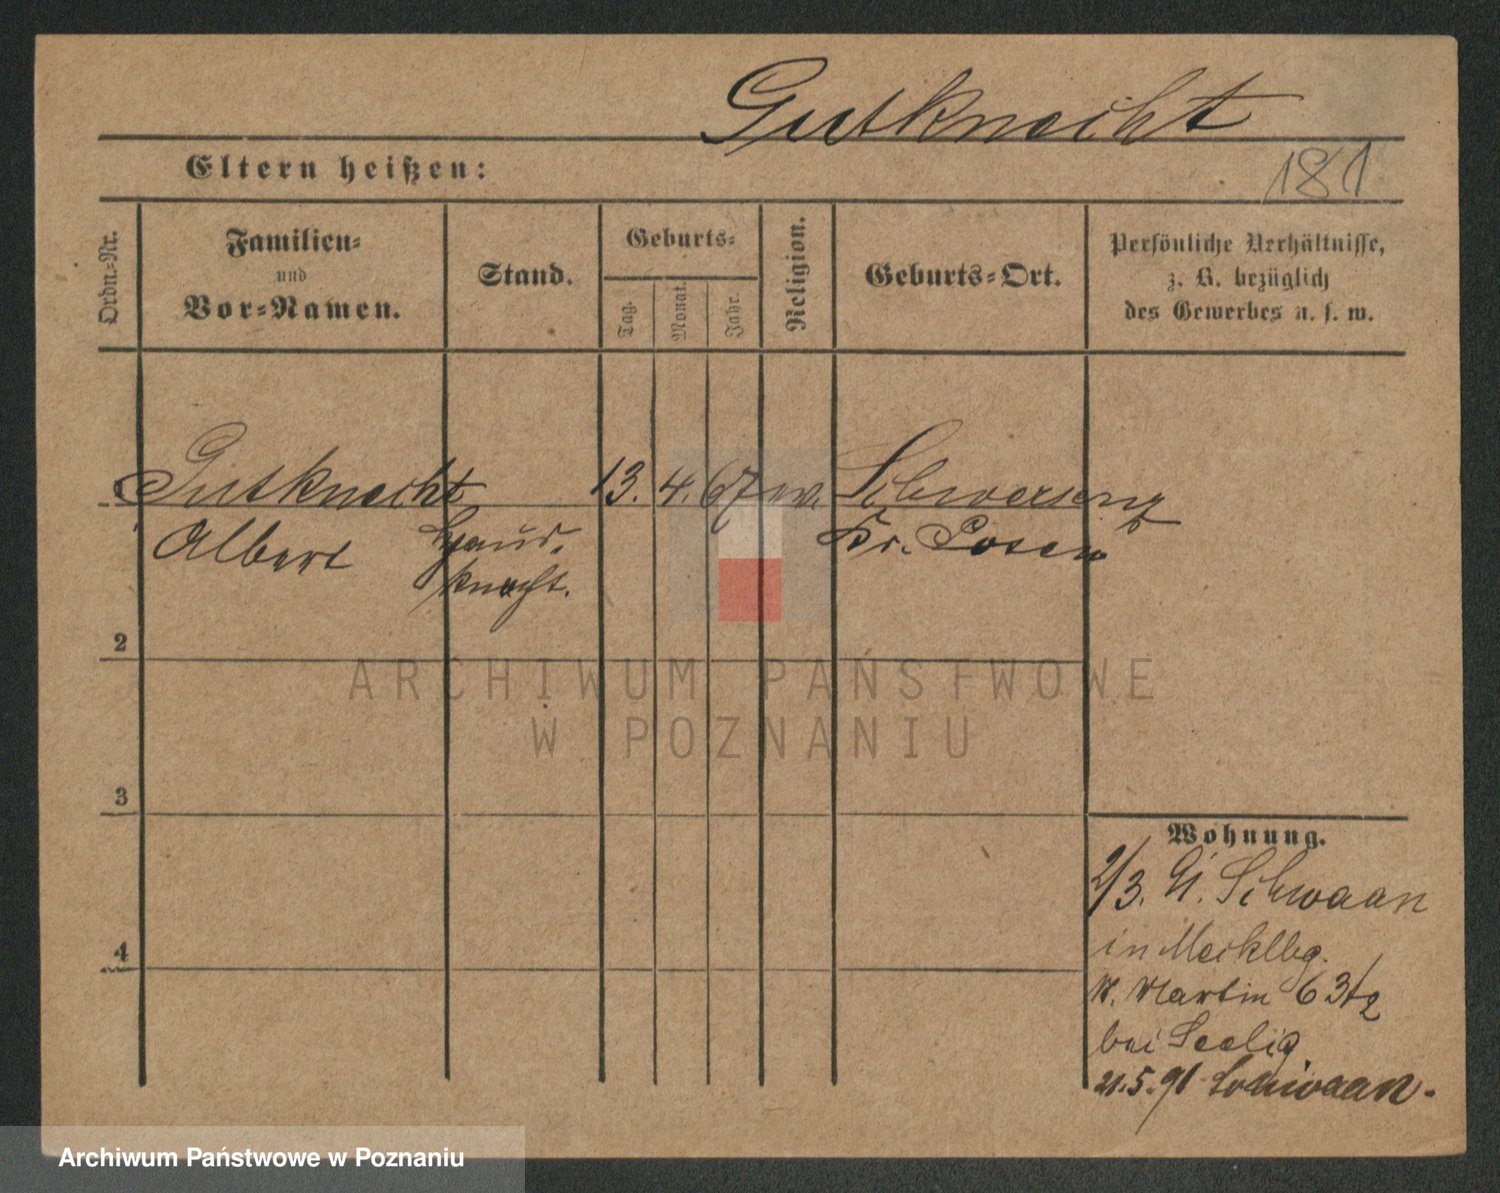 Gutknecht
Eltern heißen:
181
Ordn.-Nr.
Familien-
und
Vor-Namen.
Stand.
Geburts-
Tag.
Monat.
Jahr.
Religion.
Geburts-Ort.
Persönliche Verhältnisse,
z. B. bezüglich
des Gewerbes u. s. w.
Gutknecht 13. 4. 67 Schwersenz
Albert Haus- Kr. Posen
knecht.
2
3
4
Wohnung.
2/3. Schwaan
in Mecklbg.
Martin 63
bei Seelig
21.5.91 Schwaan.
ARCHIWUM PAŃSTWOWE
W POZNANIU
Archiwum Państwowe w Poznaniu